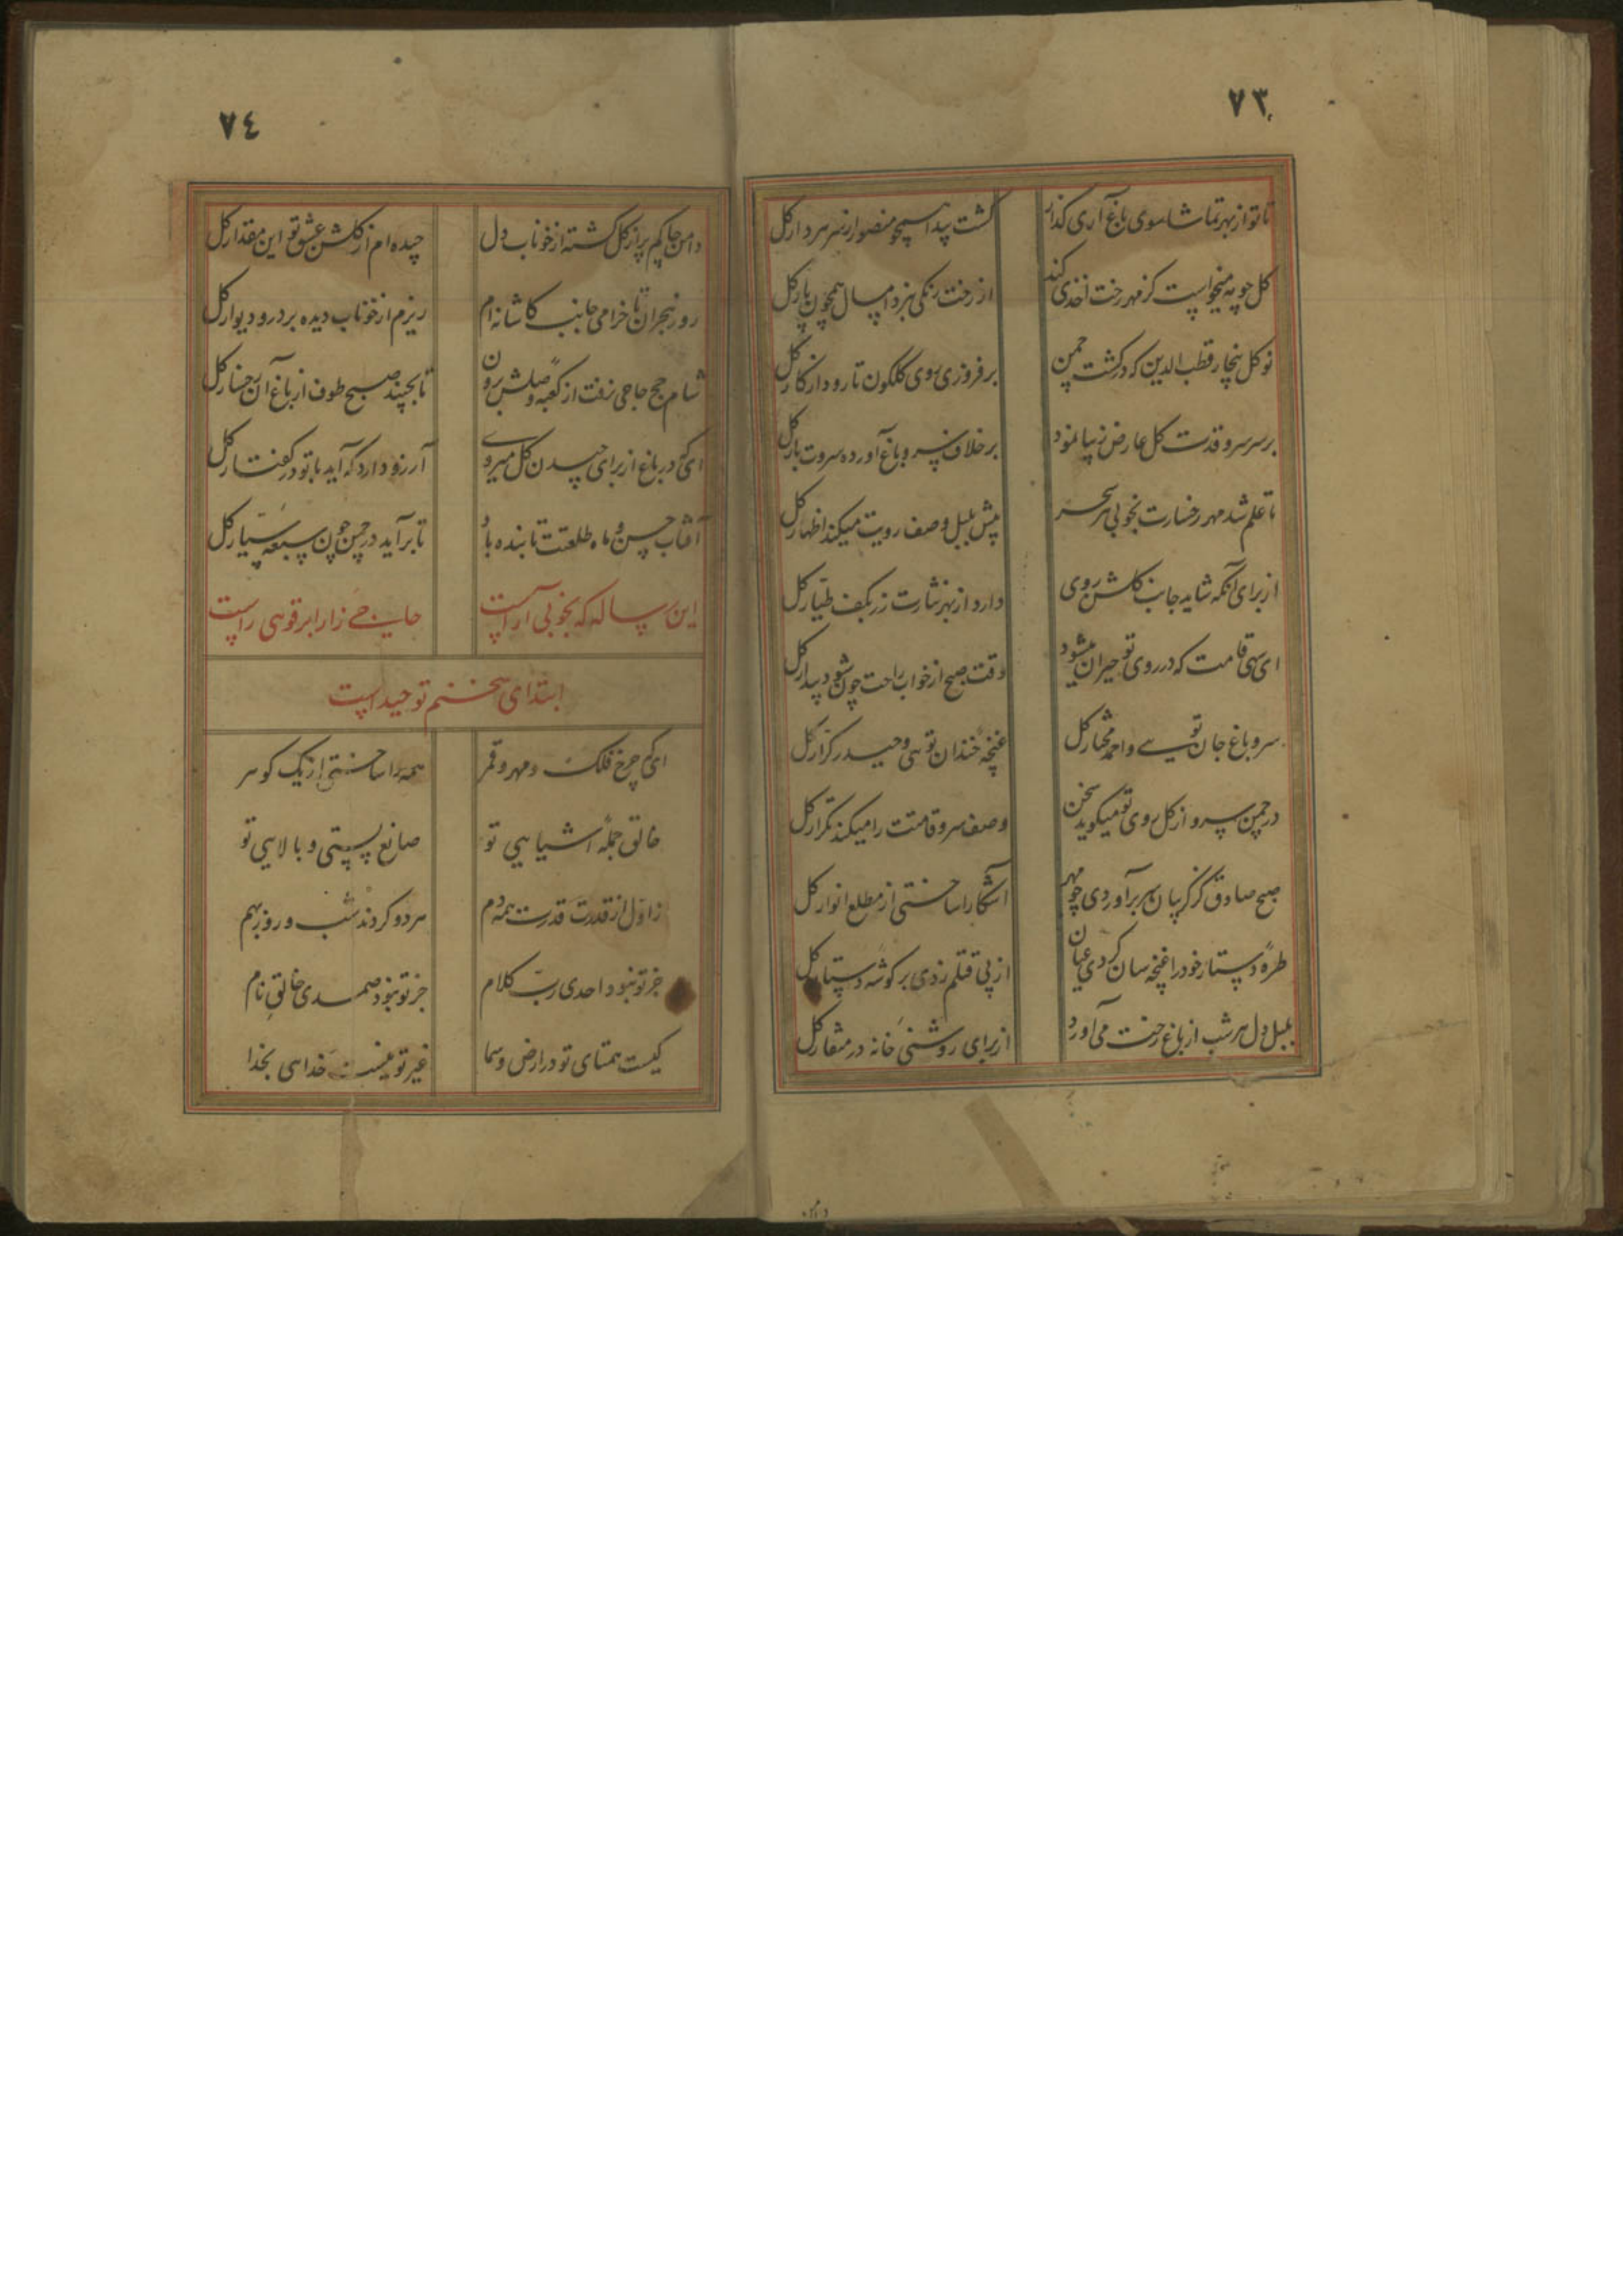 ٧٣
تا تو از بهر تماشا سوی باغ آری گذار گشت پیدا همچو منصور از سر هر دار گل
گل چو به میخواست کز مهر رخت اخذی کند از رخت رنگی نبرد امسال همچون پار گل
نو گل نجار قطب الدین که در گشت چمن بر فروزی روی گلگون تا رود از کار گل
بر سر سرو قدت گل عارض زیبا نمود بر خلاف سرو باغ آورده سروت بار گل
تا علم شد مهر رخسارت بخوبی هر سحر پیش بلبل وصف رویت میکند اظهار گل
از برای آنکه شاید جانب گلشن روی دارد از بهر نثارت زر بکف طیار گل
ای سهی قامت که در روی تو حیران میشود وقت صبح از خواب راحت چون شود بیدار گل
سرو باغ جان تویی و احمد مختار گل غنچهٔ خندان تویی و حیدر کرار گل
در چمن سرو از گل روی تو میگوید سخن وصف سرو قامتت را میکند تکرار گل
صبح صادق کز گریبان سر برآوردی چو مهر آشکارا ساختی از مطلع انوار گل
طرهٔ دستار خود را غنچه سان کردی عیان از پی قتلم زدی بر گوشهٔ دستار گل
بلبل دل هر شب از باغ رخت می آورد از برای روشنی خانه در منقار گل
٧٤
دامن چاکم پر از گل گشته از خوناب دل چیده ام از گلشن عشق تو این مقدار گل
روز هجران تا خرامی جانب کاشانه ام ریزم از خوناب دیده بر در و دیوار گل
شام حج حاجی نرفت از کعبهٔ وصلش برون تا بچیند صبح طوف از باغ آن رخسار گل
ای که در باغ از برای چیدن گل میروی آرزو دارد که آید با تو در گفتار گل
آفتاب حسن و ماه طلعتت تابنده باد تا برآید در چمن چون سبعهٔ سیار گل
این رساله که بخوبی آراست حاجی زار ابرقوهی راست
ابتدای سخنم توحید است
ای که چرخ فلک و مهر و قمر همه را ساختی از یک گوهر
خالق جملهٔ اشیایی تو صانع پستی و بالایی تو
ز اول از قدرت همه دم هر دو کردند شب و روز بهم
جز تو نبود احدی رب کلام جز تو نبود صمدی خالق نام
کیست همتای تو در ارض و سما غیر تو نیست خدایی بخدا